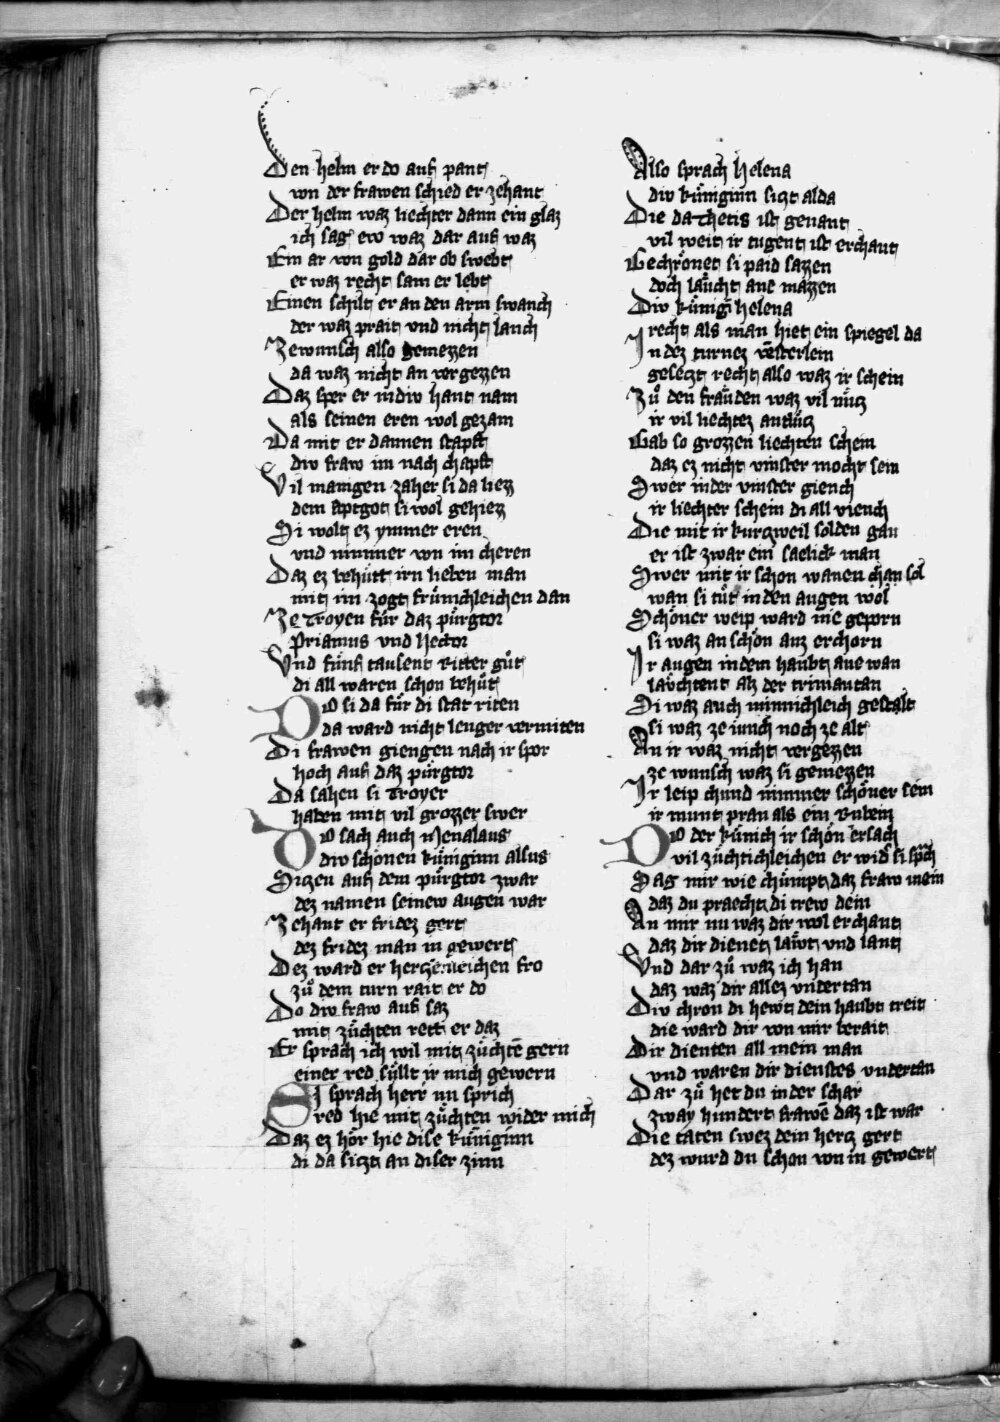 Den helm er do auf pant
von der frawen schied er zehant
Der helm waz liechter dann ein glaz
ich sag ew waz dar auf waz
Ein ar von gold dar ob swebt
er waz recht sam er lebt
Einen schilt er an den arm swanch
der waz prait vnd nicht lanch
Zewunsch also gemezzen
da waz nicht an vergezzen
Daz sper er indiw hant nam
als seinen eren wol gezam
Da mit er dannen stapft
diw fraw im nach chapft
Vil manigen zaher si da liezz
dem aptgot si wol gehiezz
Si wolt ez ymmer eren
vnd nimmer von im cheren
Daz ez behuͤtt irn lieben man
mit im zogt fruͤmchleichen dan
Ze Troyen fuͤr daz puͤrgtor
Priamus vnd Hector
Vnd fuͤnf tausent Ritter guͤt
di all waren schon behuͤt
Do si da fuͤr di stat riten
da ward nicht lenger vermiten
Di frawen giengen nach ir spor
hoch auf daz puͤrgtor
Da sahen si Troyer
haben mit vil grozzer swer
Do sach auch Menalaus
diw schoͤnen kuͤniginn allus
Sitzen auf dem puͤrgtor zwar
dez namen seinew augen war
Zehant er fridez gert
dez fridez man in gewert
Dez ward er hercz fro
zuͤ dem turn rait er do
Do diw fraw auf saz
mit zuͤchten rett er daz
Er sprach ich wil mit zuͤchtē gern
einer red suͤllt ir mich gewern
Si sprach herr nu sprich
red hie mit zuͤchten wider mich
Daz ez hoͤr hie dise kuͤniginn
di da siczt an diser zinn
Also sprach Helena
diw kuͤniginn siczt alda
Die da Thetis ist genant
vil weit ir tugent ist erchant
Gechroͤnet si paid sazzen
doch laͤucht ane mazzen
Diw kuͤnigī helena
recht als man hiet ein spiegel da
In dez turnez vēsterlein
gesetzt recht also waz ir schein
Zuͤ den fraͤuden waz vil nuͤcz
ir vil liechtez antluͤcz
Gab so grozzen liechten schein
daz ez nicht vinster mocht sein
Swer inder vinster giench
ir liechter schein di all viench
Die mit ir kurczweil solden gan
er ist zwar ein saelick man
Swer mit ir schon wanen chan sol
wan si tuͤt in den augen wol
Schoͤner weip ward nie geporn
si waz an schoͤn auz erchorn
Ir augen indem haubt ane wan
lauchtent alz der trimantan
Si waz auch minnichleich gestalt
si waz ze iunch noch ze alt
An ir waz nicht vergezzen
ze wunsch waz si gemezzen
Ir leip chund nimmer schoͤner sein
ir munt pran als ein Rubein
Do der kuͤnich ir schoͤn ersach
vil zuͤchtichleichen er wid si spch
Sag mir wie chuͤmpt daz fraw mein
daz du praecht di trew dein
An mir nu waz dir wol erchant
daz dir dienet laͤwt vnd lant
Vnd dar zuͤ waz ich han
daz waz dir allez vndertan
Diw chron di hewt dein haubt treit
die ward dir von mir berait
Dir dienten all mein man
vnd waren dir dienstes vndertan
Dar zuͤ het du in der schar
zway hundert frawē daz ist war
Die taten swez dein hercz gert
dez wurd du schon von in gewert